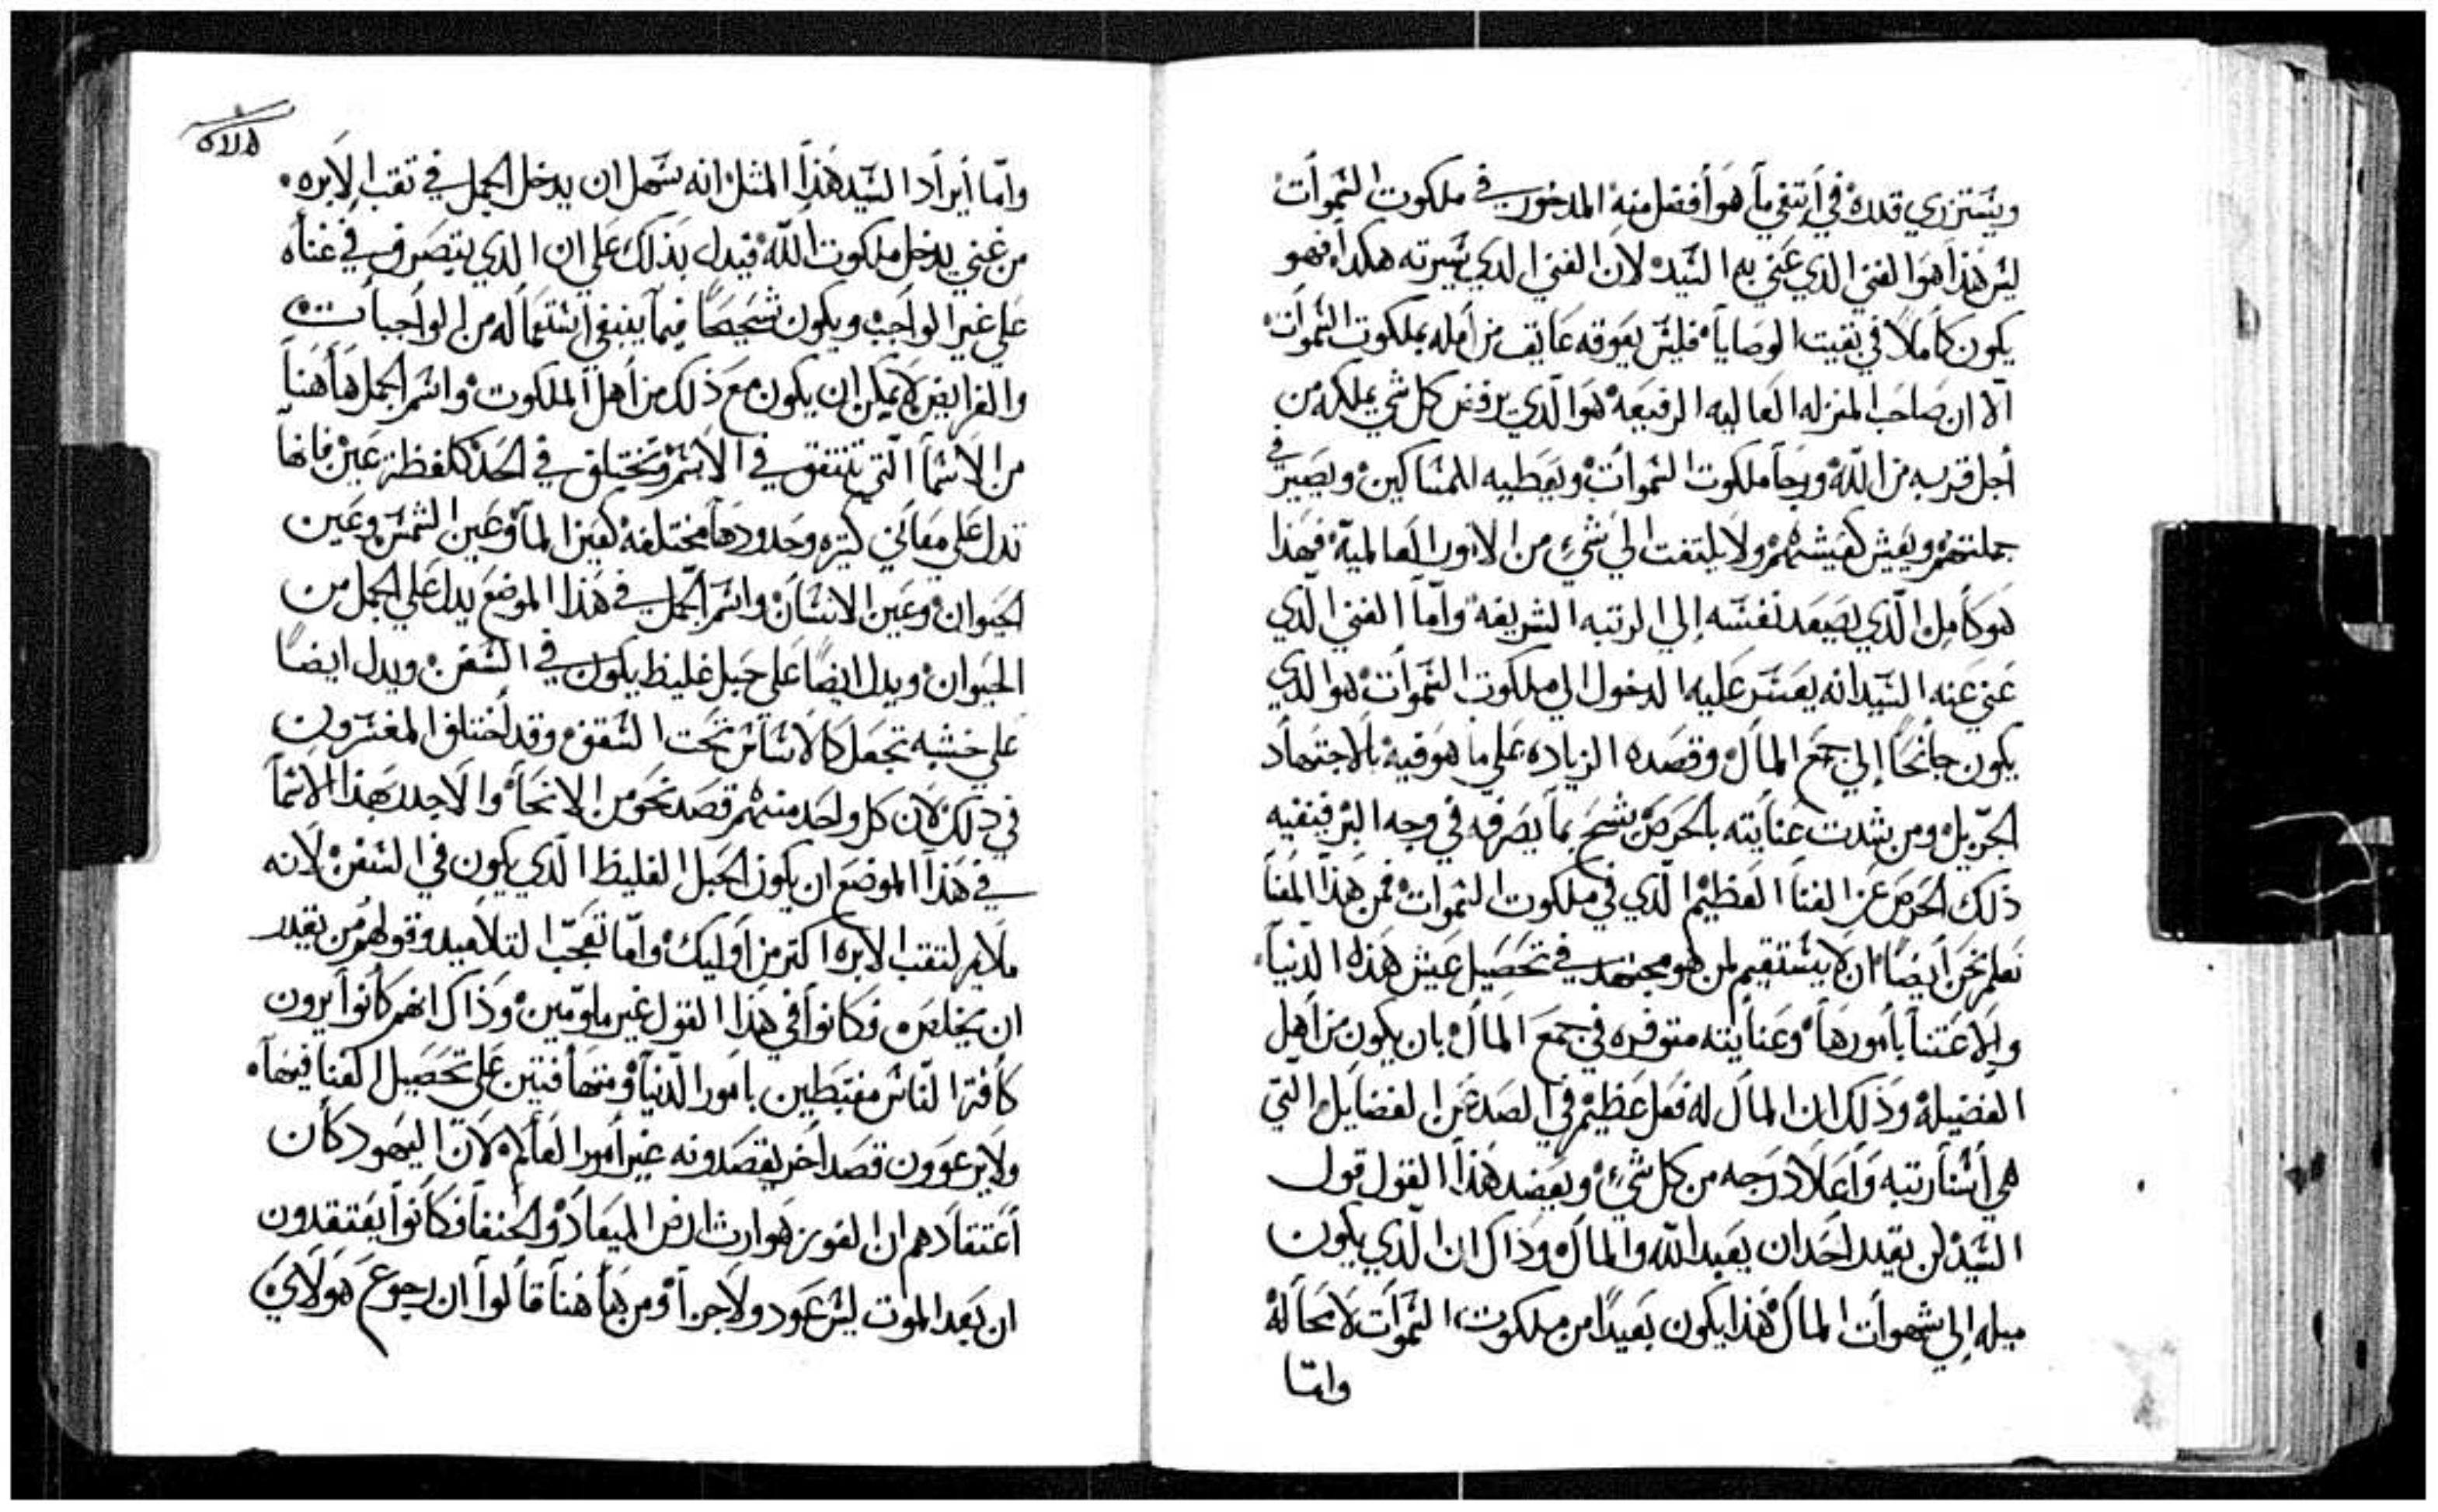 ويستزري قدره في ابتغي ما هو أفضل منه المدخور في ملكوت السموات
ليس هذا هو الغني الذي عني به السيد لان الغني الذي سيرته هكدا فهو
يكون كاملا في بقيت الوصايا فليس يعوقه عايق من امله بملكوت السموات
الا ان صاحب المنزله العاليه الرفيعه هو الذي يرفض كل شي يملكه من
أجل قربه من الله ورجا ملكوت السموات ويعطيه للمساكين ويصير في
جملتهم ويعيش كعيشتهم ولا يلتفت الي شيء من الامور العالمية فهذا
هو كامل الذي يصعد نفسه إلي الرتبه الشريفة وأما الغني الذي
عني عنه السيد انه يعسر عليه الدخول الي ملكوت السموات هو الذي
يكون جانحا إلي جمع المال وقصده الزياده علي ما هو فيه بالاجتهاد
الجزيل ومن شدت عنايته بالحرص يشح بما يصرفه في وجه البر فينفيه
ذلك الحرص عن الغنا العظيم الذي في ملكوت السموات فمن هذا المعنا
نعلم نحن أيضا ان لا يستقيم لمن هو مجتهد في تحصيل عيش هذه الدنيا
والاعتنا بامورها وعنايته متوفره في جمع المال بان يكون من اهل
الفضيلة وذلك ان المال له فعل عظيم في الصد عن الفضايل التي
هي أسنا رتبه وأعلا درجه من كل شيء ويعضد هذا القول قول
السيد لن يقدر احد ان يعبد الله والمال وذاك ان الذي يكون
ميله إلي شهوات المال هذا يكون بعيدا من ملكوت السموات لا محاله
واما
واما أيراد السيد هذا المثل انه يسهل ان يدخل الجمل في تقب الابره
من غني يدخل ملكوت الله فيدل بذلك علي ان الذي يتصرف في غناه
علي غير الواجب ويكون شحيحا فيما ينبغي استعماله من الواجبات
والفرايض لا يمكن ان يكون مع ذلك من أهل الملكوت واسم الجمل هاهنا
من الاسما التي تتفق في الاسم وتختلق في الحد كلفظة عين فانها
تدل علي معاني كتيره وحدودها مختلفه كعين الما وعين الشمس وعين
الحيوان وعين الانسان واسم الجمل في هذا الموضع يدل علي الجمل من
الحيوان ويدل ايضا علي حبل غليظ يكون في السفن ويدل ايضا
علي خشبه تجعل كالاساس تحت السقف وقد اختلف المفسرون
في ذلك لان كل واحد منهم قصد نحو من الانحا والاجدر بهذا الاسما
في هذا الموضع ان يكون الحبل الغليظ الذي يكون في السفن لانه
ملايم لتقب الابره اكتر من أوليك وأما تعجب التلاميد وقولهم من يقدر
ان يخلص فكانوا في هذا القول غير ملومين وذاك انهم كانوا يرون
كافة الناس مغتبطين بامور الدنيا ومتهافتين علي تحصيل الغنا فيها
ولا يرعوون قصد اخر يقصدونه غير أمور العالم لان اليهود كان
أعتقادهم ان الفوز هو ارث ارض الميعاد والحنفا فكانوا يعتقدون
ان بعد الموت ليس عود ولا جزا ومن هاهنا قالوا ان رجوع هولاي